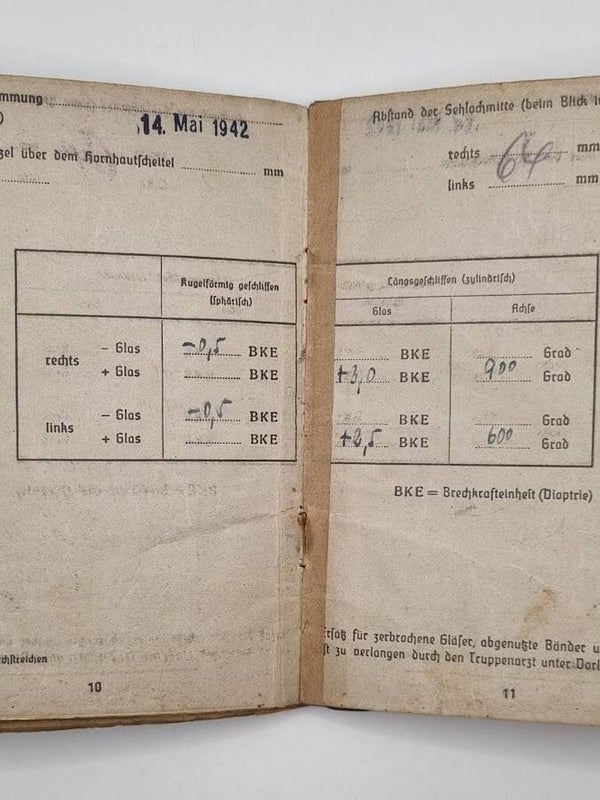 mmung
)
14. Mai 1942
zel über dem Hornhautscheitel mm
Kugelförmig geschliffen
(sphärisch)
rechts – Glas -0,5 BKE
+ Glas BKE
links – Glas -0,5 BKE
+ Glas BKE
chstreichen
10
Abstand der Sehlochmitte (beim Blick i
rechts 64 mm
links mm
Längsgeschliffen (zylindrisch)
Glas Achse
BKE Grad
+3,0 BKE 900 Grad
BKE Grad
+2,5 BKE 600 Grad
BKE = Brechkrafteinheit (Dioptrie)
Ersatz für zerbrochene Gläser, abgenutzte Bänder u
st zu verlangen durch den Truppenarzt unter Vorl
11